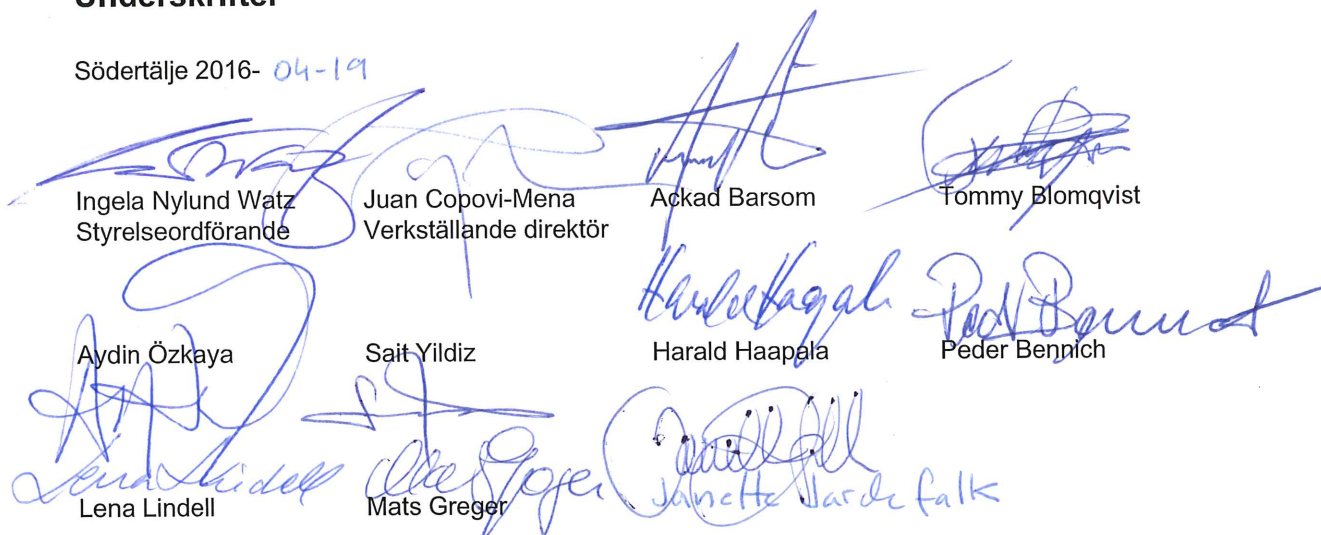 Underskrifter
Södertälje 2016- 04-19
Ingela Nylund Watz
Styrelseordförande
Juan Copovi-Mena
Verkställande direktör
Ackad Barsom
Tommy Blomqvist
Aydin Özkaya
Sait Yildiz
Harald Haapala
Peder Bennich
Lena Lindell
Lena Lindell
Mats Greger
Janette
falk